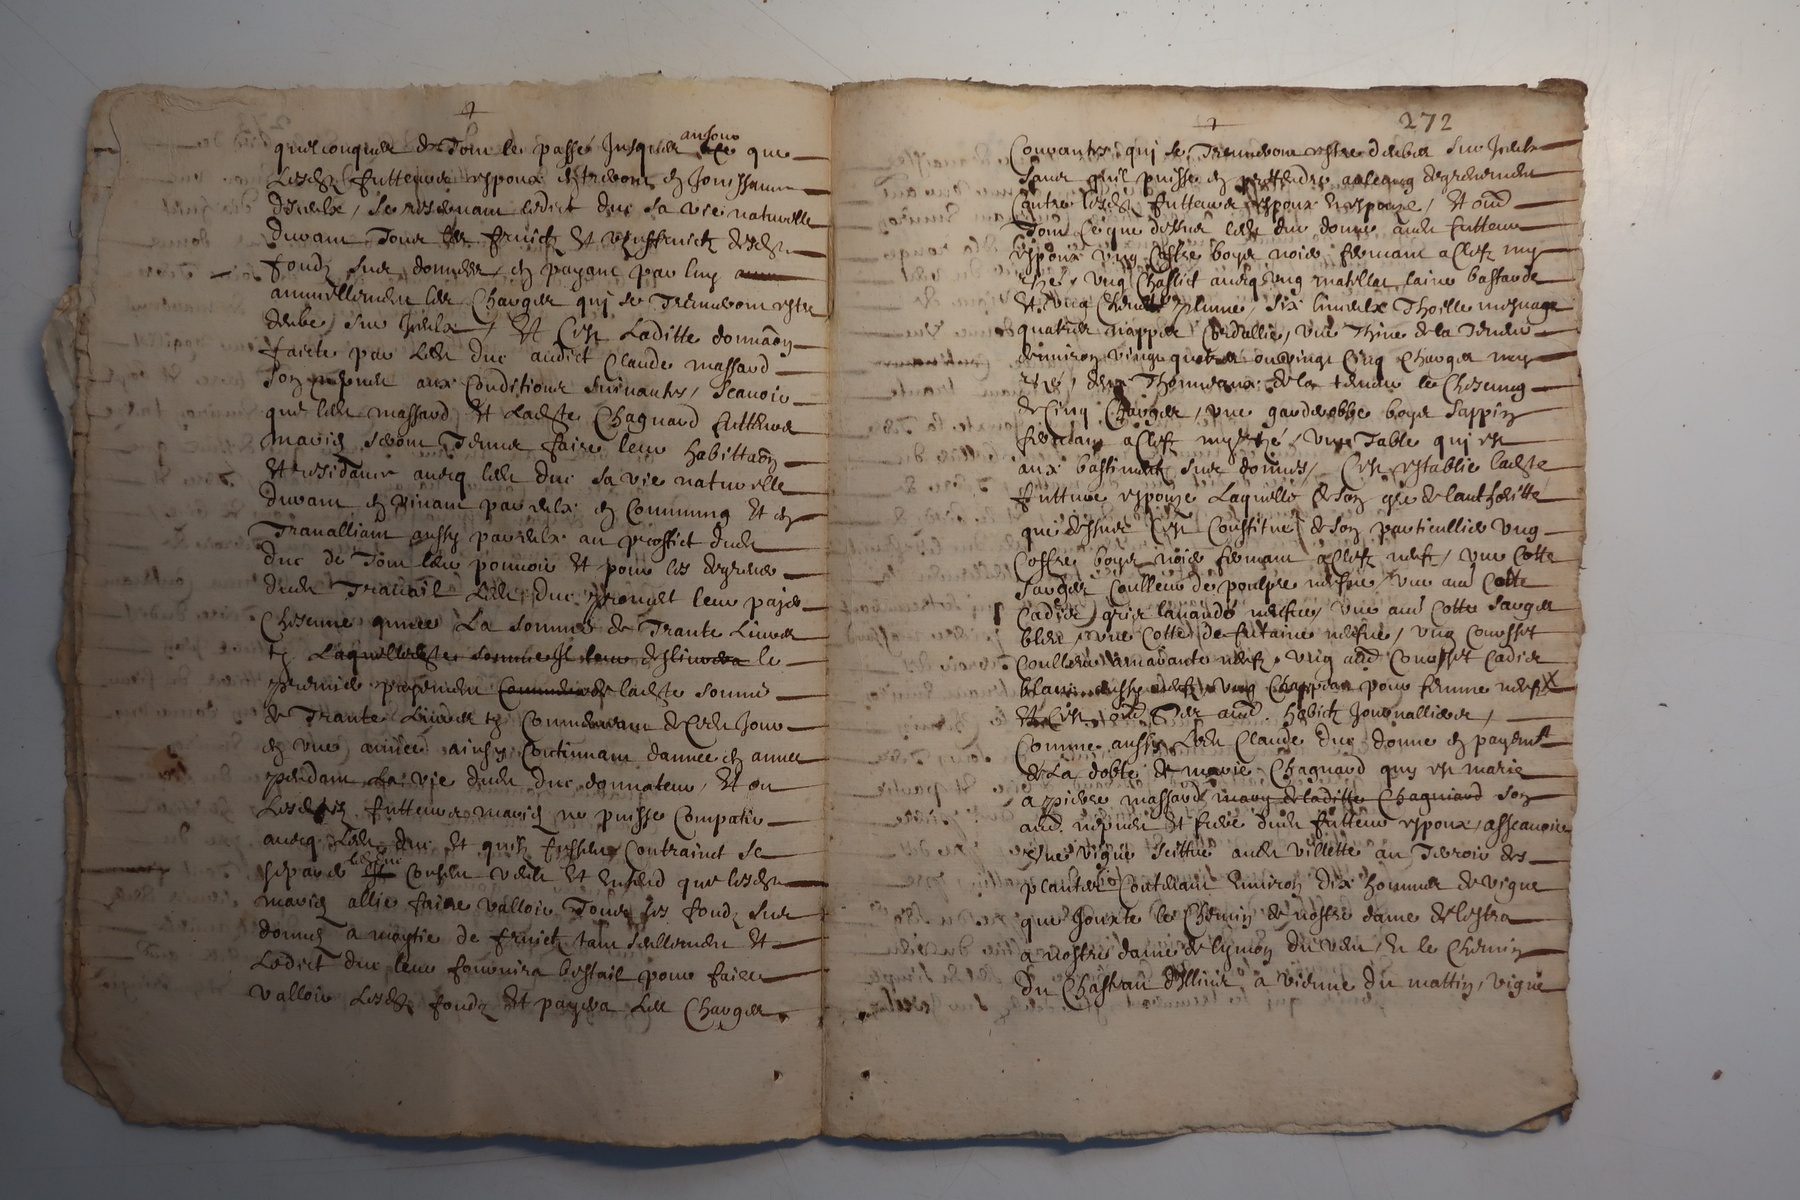 quelconques de Tout le passé Jusques au Jour que
Lesdtz futteurs espoux entreront en Jouissance
d'iceulx, se reservant ledict duc sa vie naturelle
durant Tous les fruictz Et usufruictz desdtz
fondz sus donnés, en payant par luy
annuellement les Charges qui se Treuveront estre
deubes sur Iceulx, Et C'est Laditte donnaon
faicte par Ledt duc audict Claude massard
son nepveu aux Conditions suivantes, scavoir
que ledt massard Et Ladte Chagnard futteurs
mariés seront Tenus faire leur habittaon
Et residance avecq ledt duc sa vie naturelle
durant en vivant par eulx en Commung Et en
Travalliant aussy par eulx au proffict dudt
duc de Tout leur pouvoir Et pour les
dudt Travail Ledt duc promet leur payer
Chescune année La somme de Trante Livres
tz Laquelle somme le
premier payement ladte somme
de Trante Livres tz Commensant de Cedt Jour
en une année ainsy Continuant d'annee en annee
pendant La vie dudt duc donnateur, Et ou
Lesdtz futteurs mariés ne puisse Compatir
avecq Ledt duc Et quilz fussent Contrainct se
separer ledt duc veult Et entend que lesdtz
mariés allie faire valloir Tous ses fondz sus
donnés a moytie de fruictz tant seullement Et
Ledict duc leur fournira bestail pour faire
valloir Lesdtz fondz Et payera Les Charges
272
Courantes qui se Treuveront estre deubes sur Iceulx
sans quil puisse en prettendre aulcung
Contre lesdtz futteurs espoux Et espouze, Et oultre
Tout Ce que dessus ledt duc donne audt futteur
espoux ung Coffre boys noier fermant a Clefz my
usé, ung Chaslict avecq ung matellat laine bastarde
Et ung Chevet plume, six linceulx Thoille mesnage
quatre nappes Cordallie, une Thine de la Teneur
denviron vingt quatre ou vingt Cinq Charges my
usé, deux Thonneaux de la teneur le Chescung
de Cinq Charges, une garderobbe boys sappin
fermant a Clefz my usé, une Table qui est
aux bastimentz sus donnés, C'est establie ladte
futture espouze Laquelle de son gré de l'authoritté
que dessus C'est Constitué de son particullier ung
Coffre boys noier fermant a Clefz neuf, une Cotte
sarge Coulleur de pourpre neufve, une aue Cotte
Cadis gris lavande neufve, une aue Cotte sarge
bleu, une Cotte de futaine neufve, ung Coursset
Coulleur amarante neufz, ung aue Coursset Cadis
blanc aussy neufz, ung Chappeau pour femme neufz
Et C'est oultre Ses aues habitz Journalliers,
Comme aussy Ledt Claude duc donne en payemt
de La dotte de marie Chagnard qui est marie
a pierre massard mary de laditte Chagniard son
aue nepveu Et frere dudt futteur espoux, asscavoir
une vigne scittue audt villette au Terroir des
plantées Contenant Environ dix hommes de vigne
que Jouxte le Chemin de nostre dame de l'estra
a nostre dame de lymon du vent, Et le Chemin
du Chasteau d'Illins a vienne du mattin, vigne